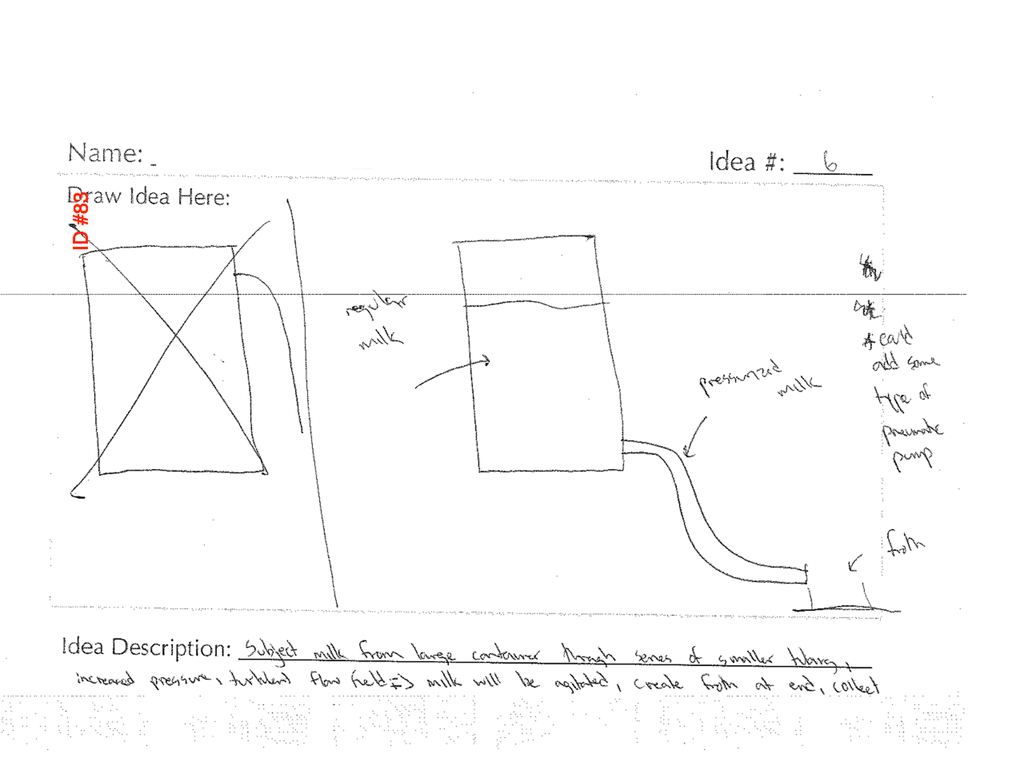 Name: -
Idea #: 6
Draw Idea Here:
ID #83
regular
milk
pressurized
milk
* could
add some
type of
pneumatic
pump
froth
Idea Description: Subject milk from large container through series of smaller tubing,
increased pressure, turbulent flow field => milk will be agitated, create froth at end, collect